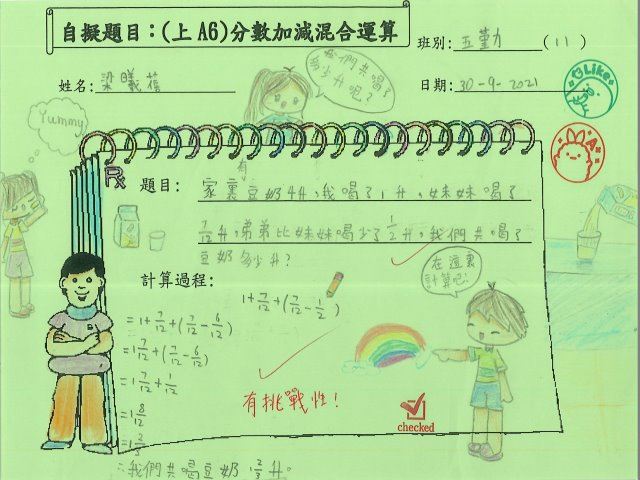 自擬題目：(上A6)分數加減混合運算
班別: 五勤 (11)
姓名: 梁曦蓓
日期: 30-9-2021
我們共喝了多少升呢？
Yummy!
Like
A
題目: 家裏有豆奶4升，我喝了1升，妹妹喝了
7/12升，弟弟比妹妹喝少了1/2升，我們共喝了
豆奶多少升？
在這裏計算吧!
計算過程:
1+7/12+(7/12-1/2)
=1+7/12+(7/12-6/12)
=1 7/12+(7/12-6/12)
=1 7/12+1/12
=1 8/12
=1 2/3
∴我們共喝豆奶1 2/3升。
有挑戰性!
checked